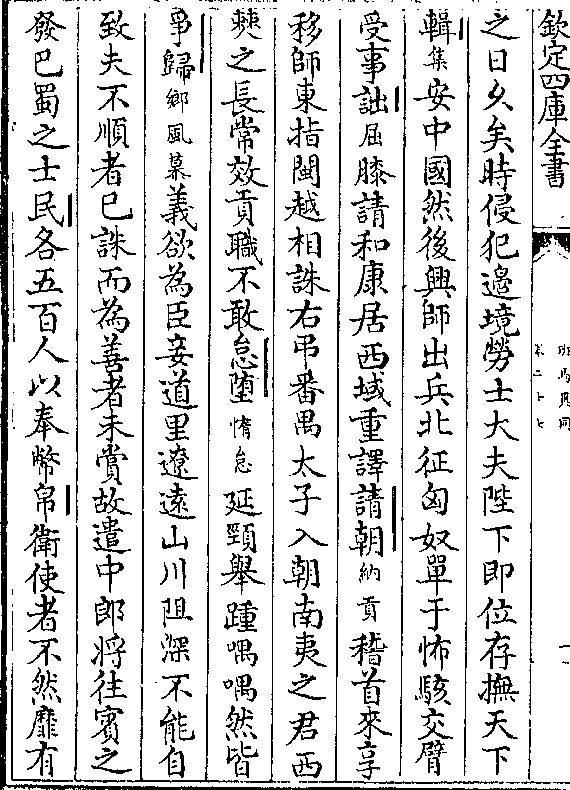 欽定四庫全書
班馬異同
卷二十七
之日久矣時侵犯邊境勞士大夫陛下即位存撫天下
輯集安中國然後興師出兵北征匈奴單于怖駭交臂
受事詘屈膝請和康居西域重譯請朝納貢稽首來享
移師東指閩越相誅右弔番禺太子入朝南夷之君西
僰之長常效貢職不敢怠墮惰怠延頸舉踵喁喁然皆
爭歸鄉風慕義欲為臣妾道里遼遠山川阻深不能自
致夫不順者已誅而為善者未賞故遣中郎將往賓之
發巴蜀之士民各五百人以奉幣帛衛使者不然靡有